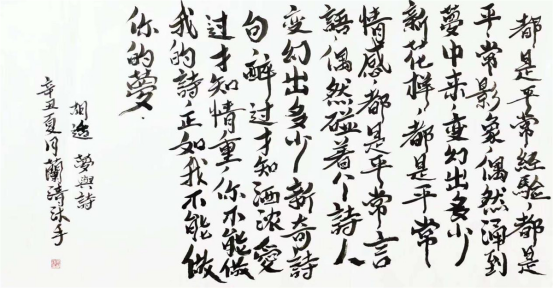 都是平常經驗都是
平常影象偶然涌到
夢中来變幻出多少
新花樣都是平常
情感都是平常言
語偶然碰着个詩人
變幻出多少新奇詩
句醉過才知酒浓愛
過才知情重你不能做
我的詩正如我不能做
你的夢
胡适 夢與詩
辛丑夏月蘭清沐手